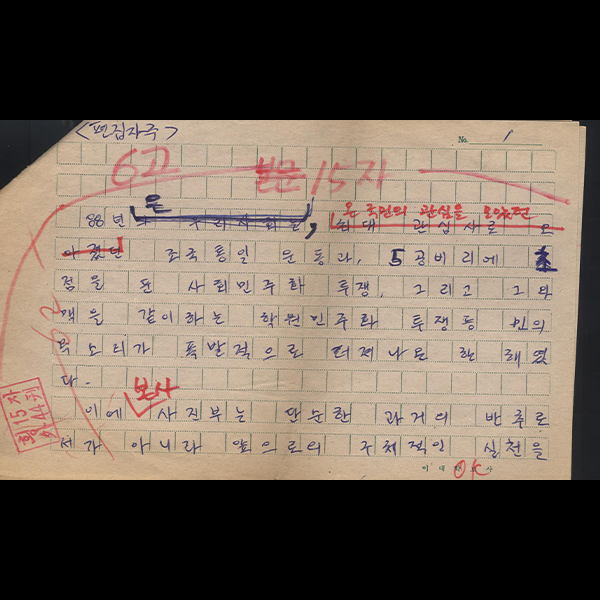 <편집자주>
No. 1
6단 본문 15자
온 국민의 관심을 모았던
88년은 우리 사회는, 최대 관심사로 모
아졌던 조국통일 운동과, 5공비리에 초
점을 둔 사회민주화 투쟁, 그리고 그 와
맥을 같이하는 학원민주화 투쟁등 민의
목소리가 폭발적으로 터져나온 한 해였
다.
본사
이에 사진부는 단순한 과거의 반추로
서가 아니라 앞으로의 주체적인 실천을
15자
OK